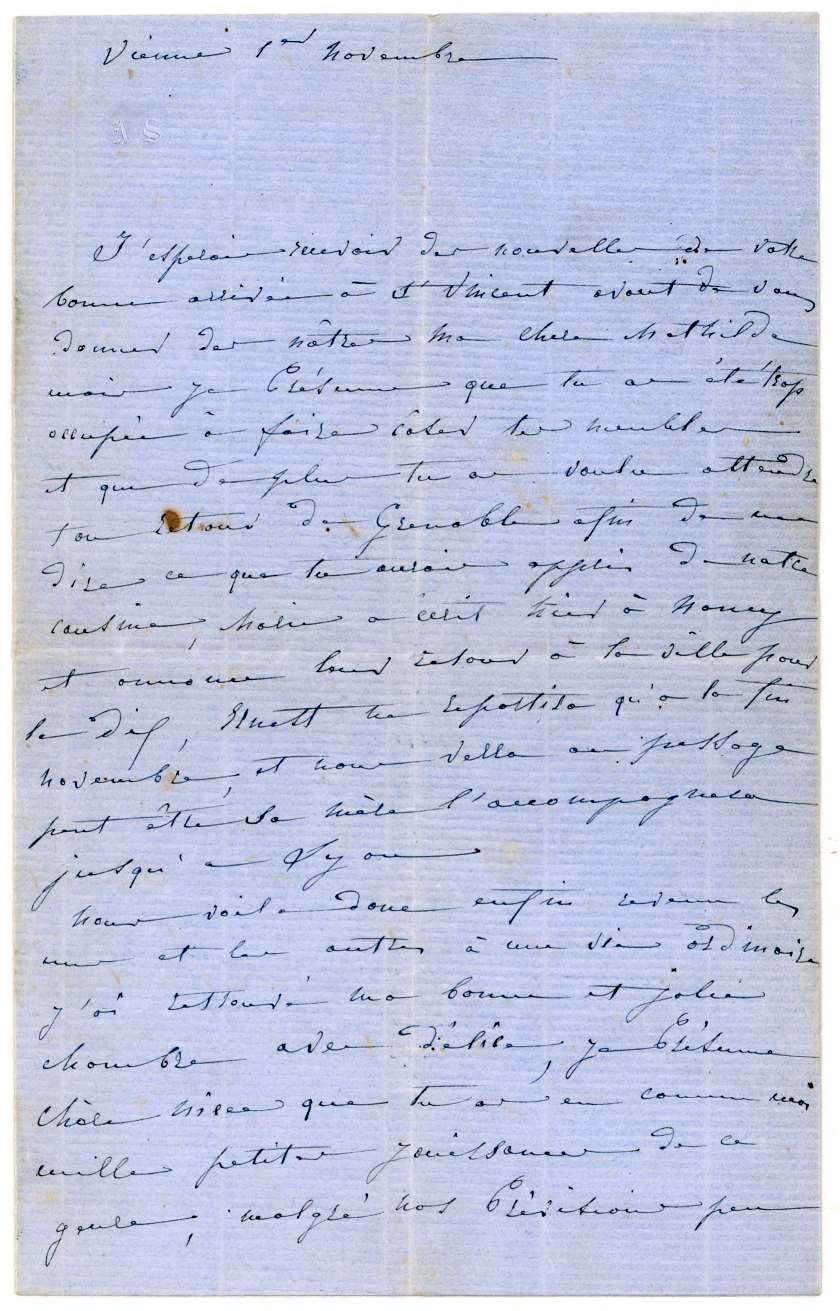 Vienne 1er Novembre
A S
J'espérais recevoir des nouvelles de votre
bonne arrivée à St Vincent avant de vous
donner des nôtres ma chère Mathilde
mais je présume que tu as été trop
occupée à faire caser tes meubles
et que de plus tu as voulu attendre
ton retour de Grenoble afin de me
dire ce que tu aurais appris de notre
cousine, Marie a écrit hier à Nancy
et annonce leur retour à la ville pour
le dix, Ernest ne repartira qu'à la fin
novembre, et nous verra au passage
peut être sa mère l'accompagnera
jusqu'a Lyon
Nous voila donc enfin revenu les
uns et les autres à une vie ordinaire
j'ai retrouvé ma bonne et jolie
chambre avec délice, je présume
chère nièce que tu as eu comme moi
mille petites jouissances de ce
genre, malgré nos prévisions peu